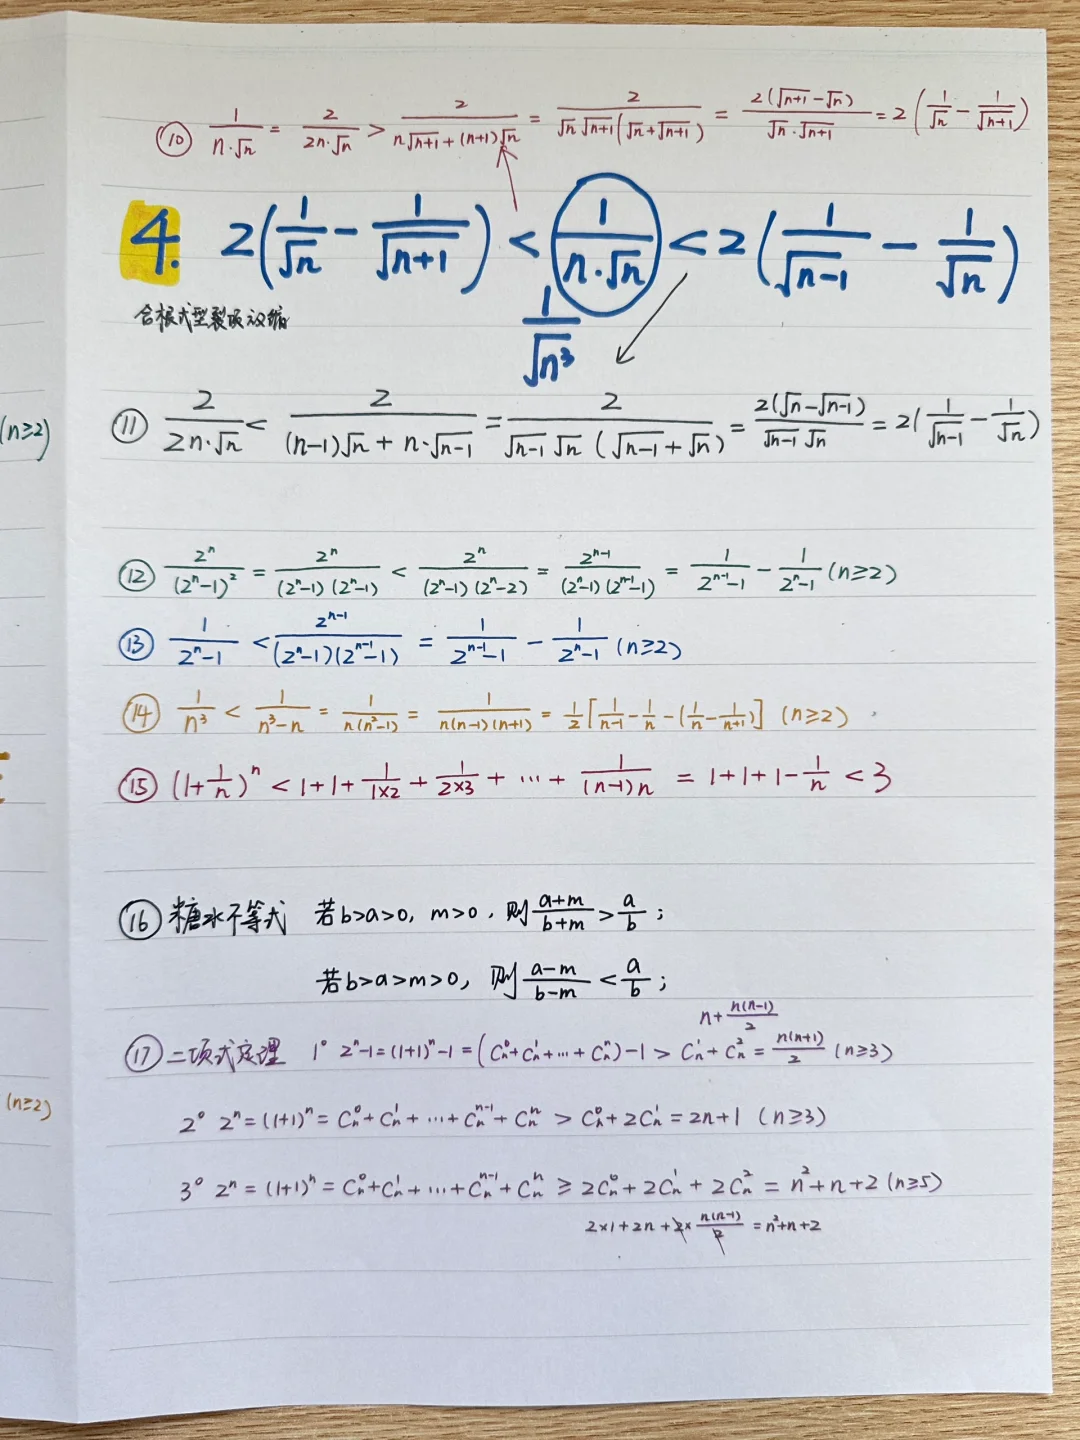 ⑩ 1/(n·√n) = 2/(2n·√n) > 2/(n√(n+1) + (n+1)√n) = 2/(√n √(n+1) (√n + √(n+1))) = 2(√(n+1) − √n)/(√n · √(n+1)) = 2(1/√n − 1/√(n+1))
4. 2(1/√n − 1/√(n+1)) < 1/(n·√n) < 2(1/√(n−1) − 1/√n)
含根式型裂项放缩
1/√n³
(n≥2)
⑪ 2/(2n·√n) < 2/((n−1)√n + n·√(n−1)) = 2/(√(n−1) √n (√(n−1) + √n)) = 2(√n − √(n−1))/(√(n−1) √n) = 2(1/√(n−1) − 1/√n)
⑫ 2ⁿ/(2ⁿ−1)² = 2ⁿ/((2ⁿ−1)(2ⁿ−1)) < 2ⁿ/((2ⁿ−1)(2ⁿ−2)) = 2ⁿ⁻¹/((2ⁿ−1)(2ⁿ⁻¹−1)) = 1/(2ⁿ⁻¹−1) − 1/(2ⁿ−1) (n≥2)
⑬ 1/(2ⁿ−1) < 2ⁿ⁻¹/((2ⁿ−1)(2ⁿ⁻¹−1)) = 1/(2ⁿ⁻¹−1) − 1/(2ⁿ−1) (n≥2)
⑭ 1/n³ < 1/(n³−n) = 1/(n(n²−1)) = 1/(n(n−1)(n+1)) = 1/2[1/(n−1) − 1/n − (1/n − 1/(n+1))] (n≥2)
⑮ (1+1/n)ⁿ < 1+1+1/(1×2) + 1/(2×3) + ⋯ + 1/((n−1)n) = 1+1+1−1/n < 3
⑯ 糖水不等式 若b>a>0, m>0, 则(a+m)/(b+m) > a/b;
若b>a>m>0, 则(a−m)/(b−m) < a/b;
n + n(n−1)/2
⑰ 二项式定理 1° 2ⁿ−1=(1+1)ⁿ−1=(Cₙ⁰+Cₙ¹+⋯+Cₙⁿ)−1 > Cₙ¹+Cₙ² = n(n+1)/2 (n≥3)
(n≥2)
2° 2ⁿ=(1+1)ⁿ=Cₙ⁰+Cₙ¹+⋯+Cₙⁿ⁻¹+Cₙⁿ > Cₙ⁰+2Cₙ¹=2n+1 (n≥3)
3° 2ⁿ=(1+1)ⁿ=Cₙ⁰+Cₙ¹+⋯+Cₙⁿ⁻¹+Cₙⁿ ≥ 2Cₙ⁰+2Cₙ¹+2Cₙ² = n²+n+2 (n≥5)
2×1+2n+2×n(n−1)/2 = n²+n+2